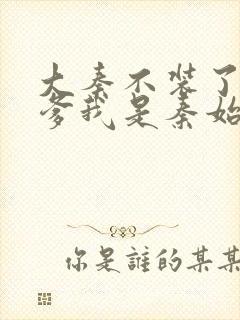 大秦不装了
爹我是秦始
你是誰的某某